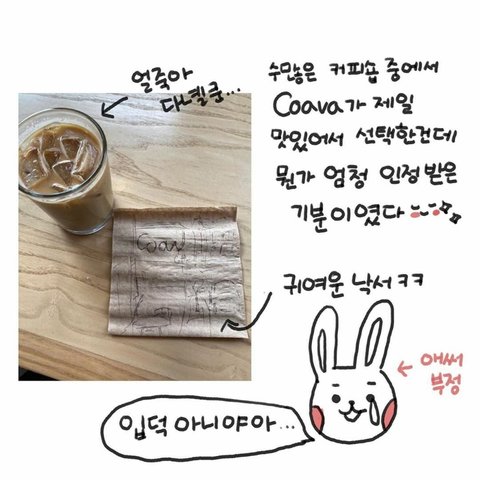 얼죽아
다넬쿵...
수많은 커피숍 중에서
Coava가 제일
맛있어서 선택한건데
뭔가 엄청 인정받은
기분이였다
Coava
귀여운 낙서 ㅋㅋ
애써
부정
입덕 아니야아...